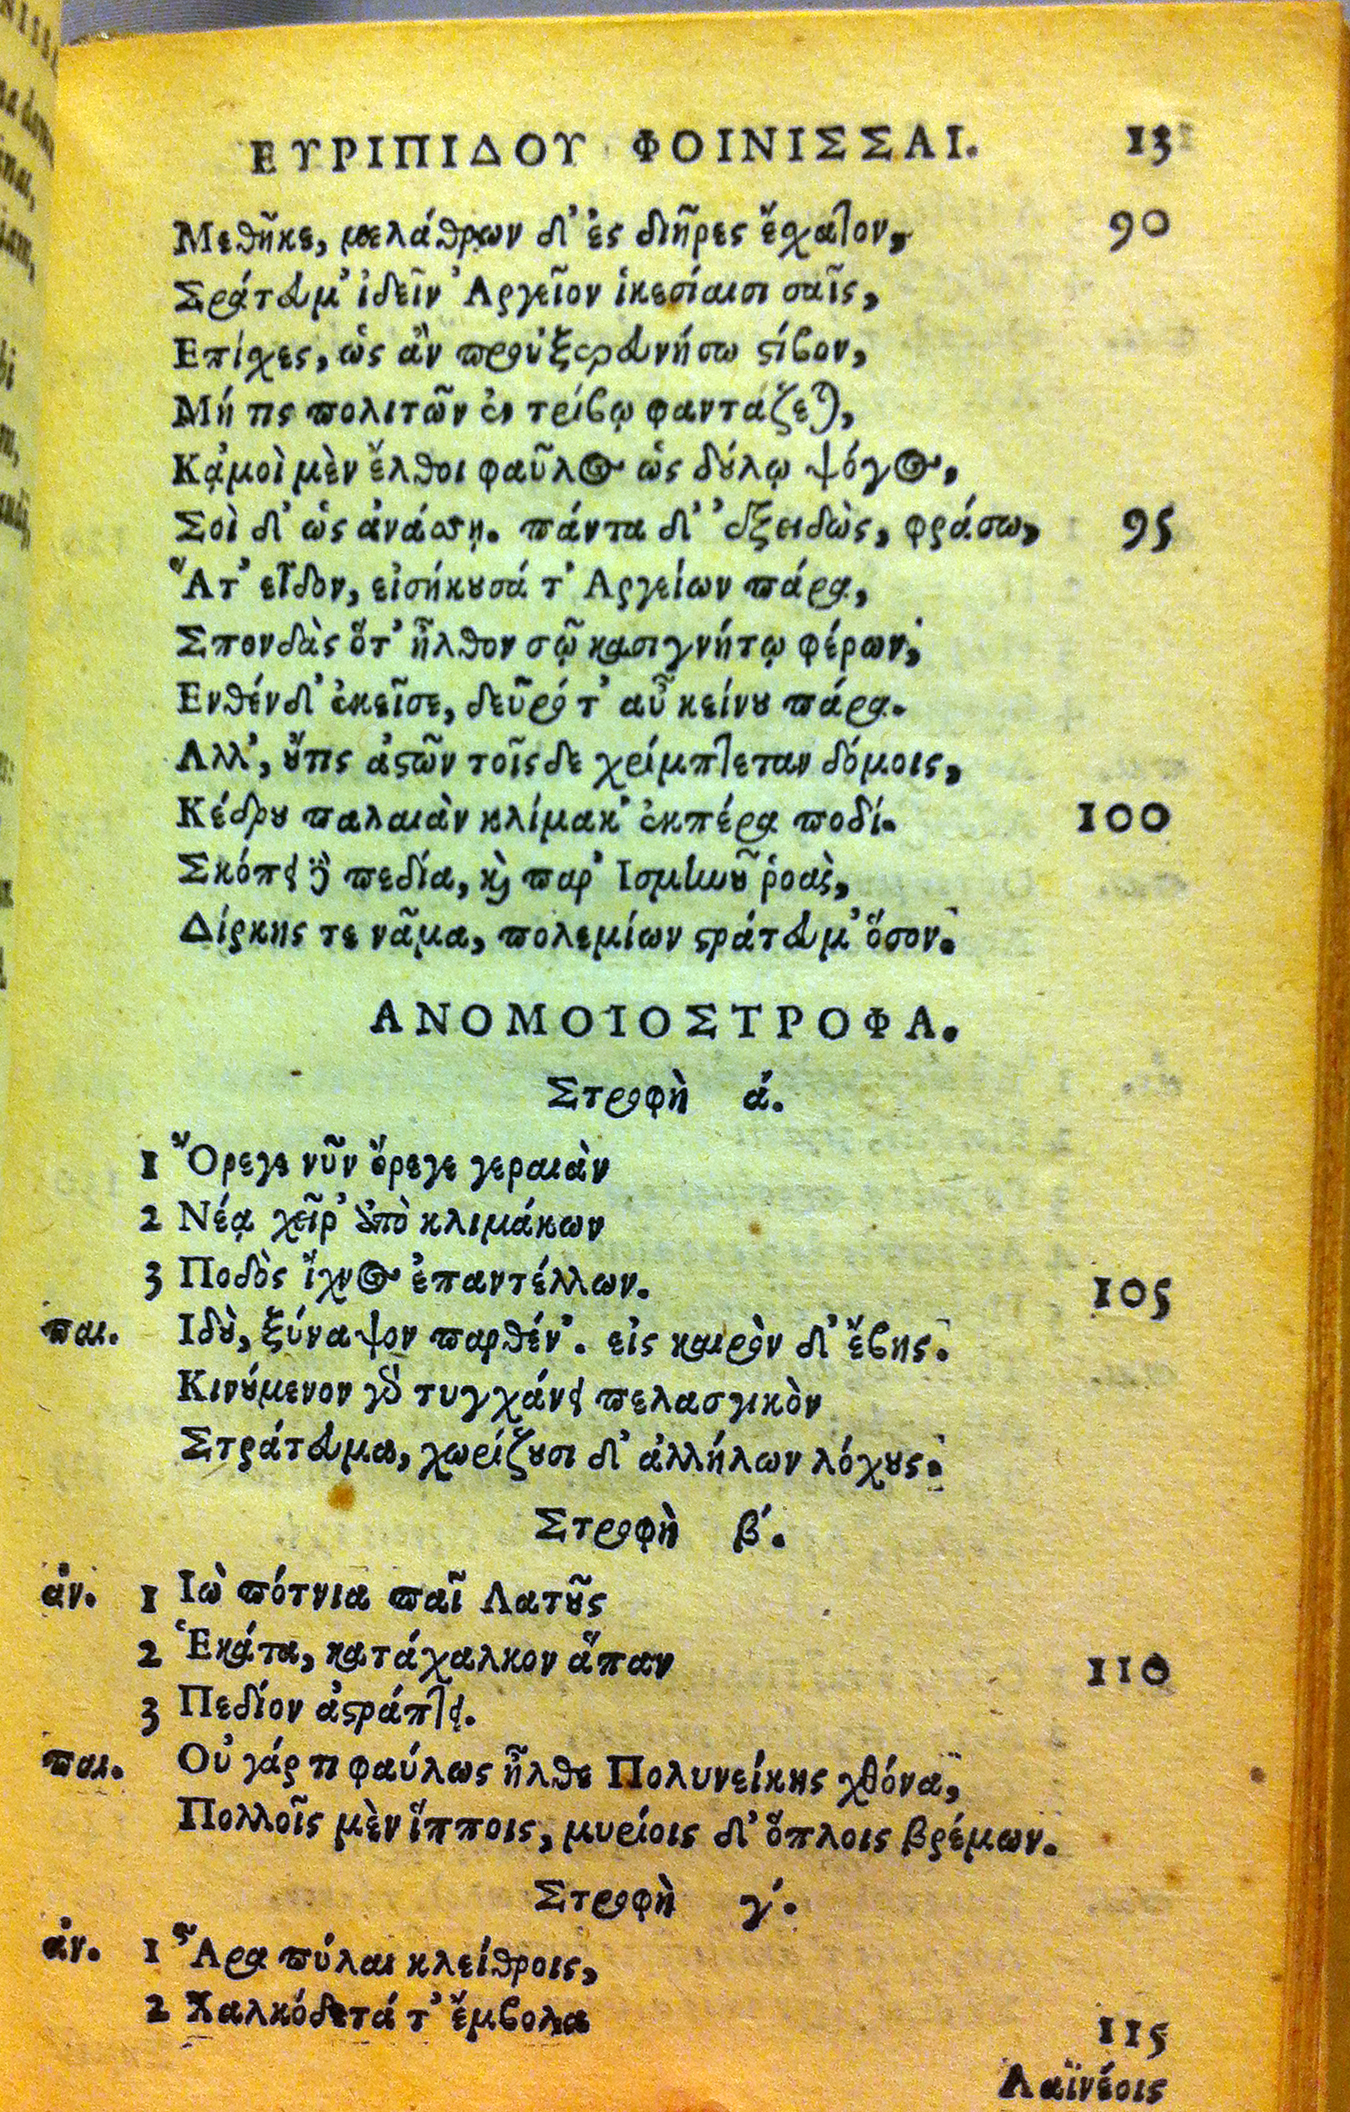 ΕΥΡΙΠΙΔΟΥ ΦΟΙΝΙΣΣΑΙ. 13
Μεθῆκε, μελάθρων δ' ἐς διῆρες ἔχατον, 90
Στράτευμ' ἰδεῖν Ἀργεῖον ἱκεσίαισι σαῖς,
Επίχες, ὡς ἂν προὐξερευνήσω στίβον,
Μή τις πολιτῶν ἐν τρίβῳ φαντάζεται,
Κᾀμοὶ μὲν ἔλθοι φαῦλος ὡς δούλῳ ψόγος,
Σοὶ δ' ὡς ἀνάσσῃ. πάντα δ' ἐξειδὼς, φράσω, 95
Ἅτ' εἶδον, εἰσήκουσά τ' Αργείων πάρα,
Σπονδὰς ὅτ' ἦλθον σῷ κασιγνήτῳ φέρων,
Ενθένδ' ἐκεῖσε, δεῦρό τ' αὖ κείνου πάρα.
Αλλ', οὔτις ἀστῶν τοῖςδε χρίμπτεται δόμοις,
Κέδρου παλαιὰν κλίμακ' ἐκπέρα ποδί. 100
Σκόπει δὲ πεδία, καὶ παρ' Ισμηνοῦ ῥοὰς,
Δίρκης τε νᾶμα, πολεμίων στράτευμ' ὅσον.
ΑΝΟΜΟΙΟΣΤΡΟΦΑ.
Στροφὴ ά.
1 Ὄρεγε νῦν ὄρεγε γεραιὰν
2 Νέᾳ χεῖρ' ἀπὸ κλιμάκων
3 Ποδὸς ἴχνος ἐπαντέλλων. 105
παι. Ιδοὺ, ξύναψον παρθέν'. εἰς καιρὸν δ' ἔβης.
Κινούμενον γὰρ τυγχάνει πελασγικὸν
Στράτευμα, χωρίζουσι δ' ἀλλήλων λόχους.
Στροφὴ β'.
ἀν. 1 Ιὼ πότνια παῖ Λατοῦς
2 Ἑκάτα, κατάχαλκον ἅπαν 110
3 Πεδίον ἀστράπτει.
παι. Οὐ γάρ τι φαύλως ἦλθε Πολυνείκης χθόνα,
Πολλοῖς μὲν ἵπποις, μυρίοις δ' ὅπλοις βρέμων.
Στροφὴ γ'.
ἀν. 1 Ἆρα πύλαι κλείθροις,
2 Χαλκόδετά τ' ἔμβολα 115
Λαϊνέοις